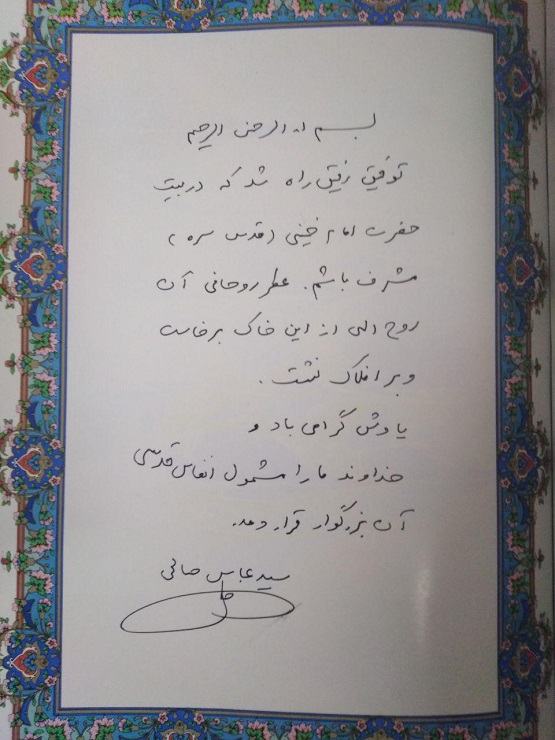 بسم اله الرحمن الرحیم
توفیق رفیق راه شد که در بیت
حضرت امام خمینی (قدس سره)
مشرف باشم. عطر روحانی آن
روح الهی از این خاک برخاست
و بر افلاک نشست.
یادش گرامی باد و
خداوند ما را مشمول انفاس قدسی
آن بزرگوار قرار دهد.
سید عباس صالحی